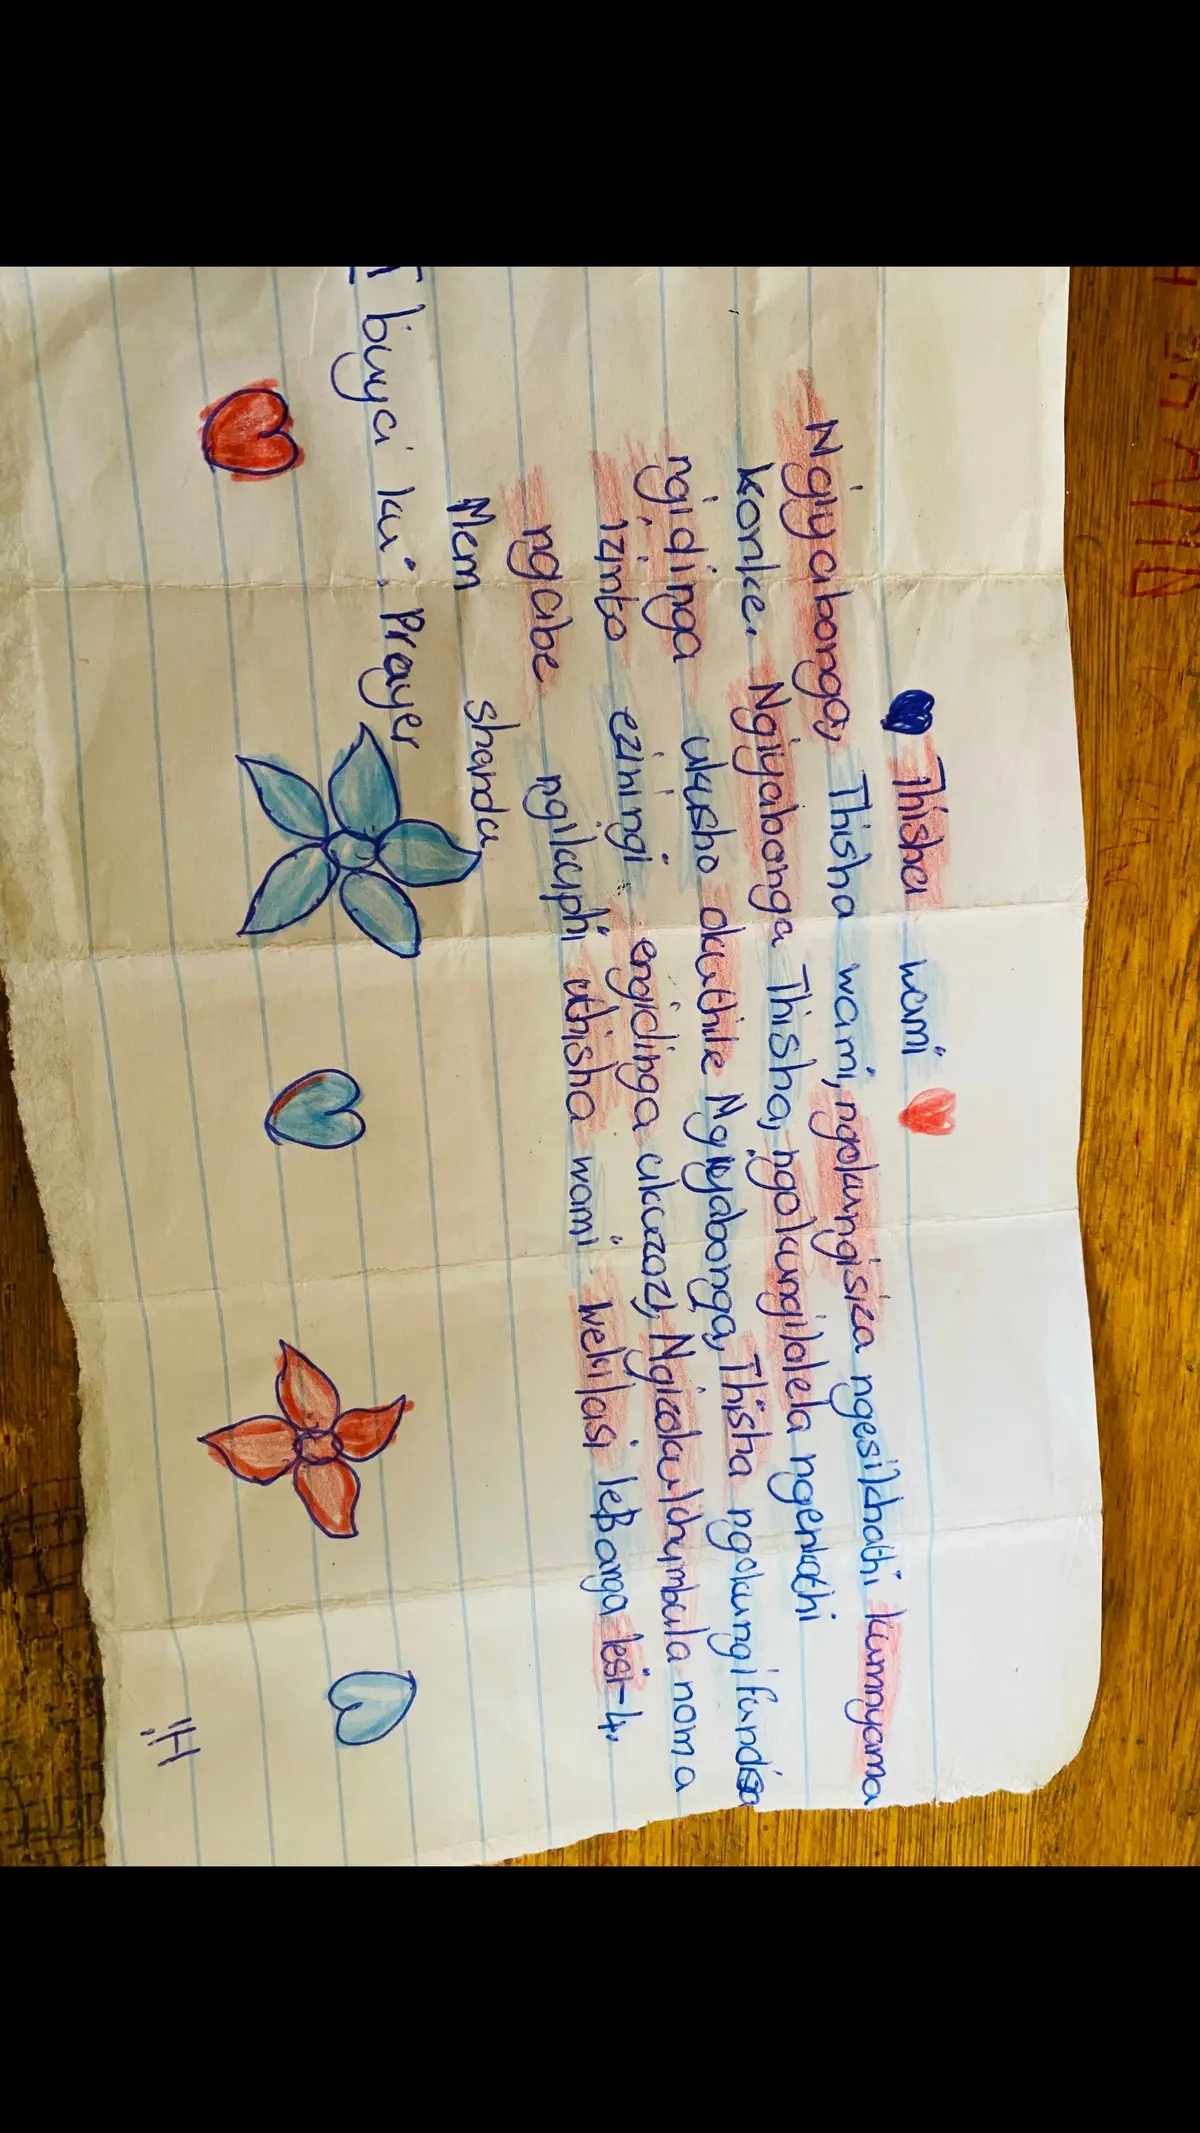 Thisha wami
Ngiyabonga, Thisha wami, ngokungisiza ngesikhathi kumnyama
konke. Ngiyabonga Thisha, ngokungilalela ngenkathi
ngidinga ukusho okuthile Ngiyabonga, Thisha ngokungifundisa
izinto eziningi engidinga ukuzazi, Ngizokukhumbula noma
ngabe ngikuphi uthisha wami wekilasi leBanga lesi-4.
Mem shandu
Ibuya ku: Prayer
Hi!